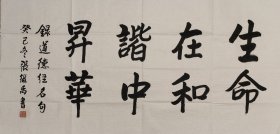 生命
在和
諧中
昇華
錄道德經名句
癸巳冬張繼禹書